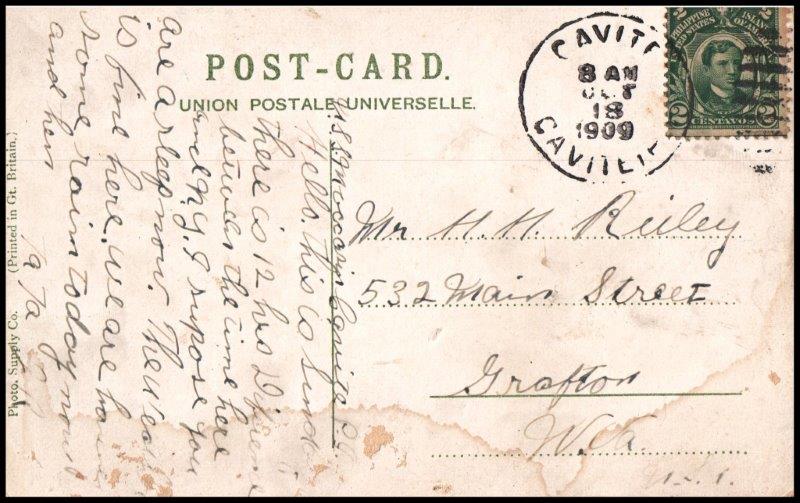 POST-CARD.
UNION POSTALE UNIVERSELLE.
CAVITE
8 AM
OCT
18
1909
CAVITE P.I.
PHILIPPINE ISLANDS
UNITED STATES OF AMERICA
2 CENTAVOS 2
Mr H. H. Riley
532 Main Street
Grafton
W.Va.
U.S.A.
U.S.S. Cavite P.I.
Hello, this is Sunda
there is 12 hrs Differenc
between the time here
and N.Y. I supose you
are asleep now. The weath
is fine here. we are havin
some rain today now
and then
Photo. Supply Co. (Printed in Gt. Britain.)